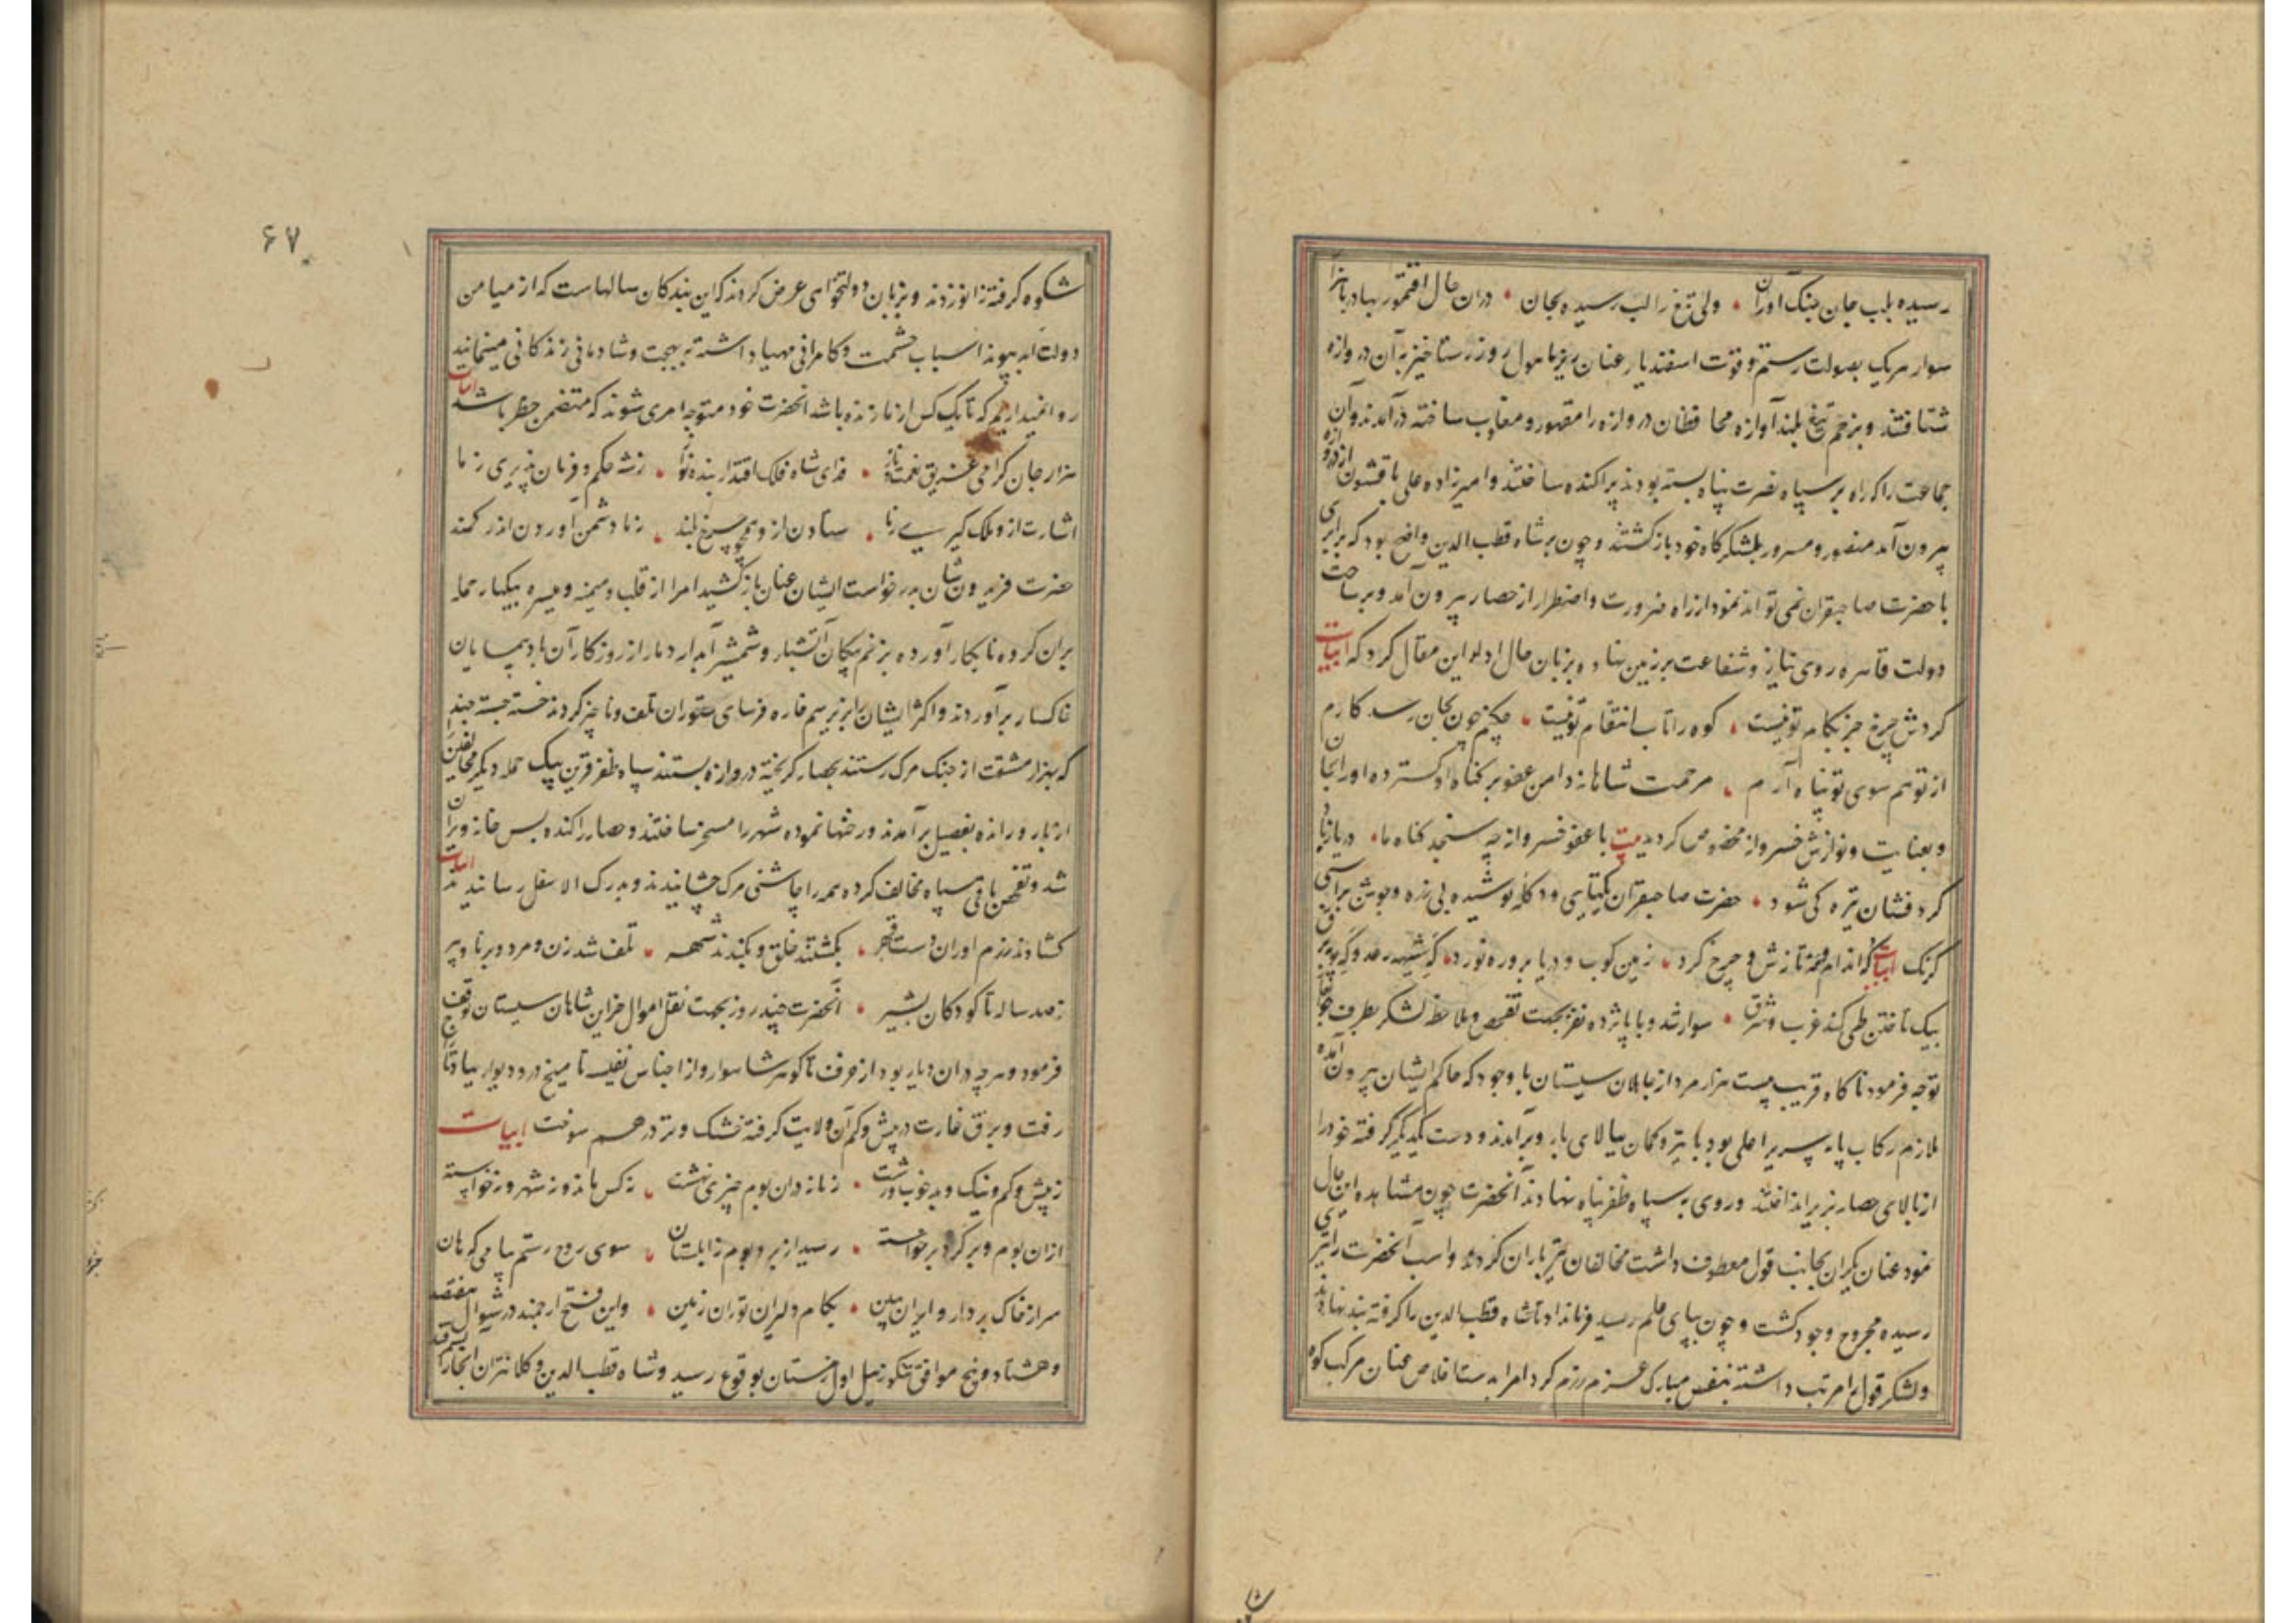 رسیده بلب جان جنک آوران ولی تیغ را لب رسیده بجان دران حال اقتمور بهادر با هزار
سوار هریک بصولت رستم و قوت اسفندیار عنان ریز با هول روز رستاخیز بآن دروازه
شتافتند و بزخم تیغ بلند آوازه محافظان دروازه را مقهور و مغلوب ساخته درآمدند و آن
جماعت را که راه بر سپاه نصرت پناه بسته بودند پراکنده ساختند و امیرزاده علی با قشون از دروازه
بیرون آمد منصور و مسرور بلشکرگاه خود بازگشتند و چون بر شاه قطب الدین واضح بود که برابری
با حضرت صاحبقران نمی تواند نمود از راه ضرورت و اضطرار از حصار بیرون آمد و بر ساحت
دولت قاهره روی نیاز و شفاعت بر زمین نهاد و بزبان حال ادا این مقال کرد که ابیات
کردش چرخ جز بکام تو نیست کوه را تاب انتقام تو نیست چکنم چون بجان رسد کارم
از تو هم سوی تو پناه آرم مرحمت شاهانه دامن عفو بر کناه او کسترده او را بجان
و بعنایت و نوازش خسروانه مخصوص کردید بیت با عفو خسروانه چه سنجد کناه ما دریا ز باد
کرد فشان تیره کی شود حضرت صاحبقران یکتایی و دکله پوشیده بی زره و جوشن بر اسبی
کرنک ابیات کز اندام تازش و چرخ کرد زمین کوب و دریا بر و ره نورد که شیهه رعد و که پویه برق
بیک تاختن طی کند غرب و شرق سوار شد و با پانزده نفر بجهت تفحص و ملاحظه لشکر بطرف
توجه فرمود ناکاه قریب بیست هزار مرد از جاهلان سیستان با وجود که حاکم ایشان بیرون آمده
ملازم رکاب پایه سریر اعلی بود با تیر و کمان ببالای بارو برآمدند و دست یکدیگر گرفته خود را
از بالای حصار بزیر انداختند و روی به سپاه ظفر پناه نهادند آنحضرت چون مشاهده این حال
نمود عنان یکران بجانب قول معطوف داشت مخالفان تیرباران کردند و اسب آنحضرت را تیری
رسیده مجروح وجود کشت و چون بپای علم رسید فرمان داد تا شاه قطب الدین را گرفته بند نهادند
و لشکر قول را مرتب داشته بنفس مبارک عزم رزم کرد امرا بدست اخلاص عنان مرکب کوه
۶۷
شکوه کرفته زانو زدند و بزبان دولتخواهی عرض کردند که این بندکان سالهاست که از میامن
دولت ابد پیوند اسباب حشمت و کامرانی مهیا داشته به بهجت و شادمانی زندکانی مینمایند
روا نمیداریم که تا یک کس از ما زنده باشد آنحضرت خود متوجه امری شوند که متضمن خطر باشد ابیات
هزار جان کرامی غریق نعمت و ناز فدای شاه فلک اقتدار بنده نواز ز شه حکم و فرمان پذیری ز ما
اشارت ازو ملک کیری ز ما ستادن ازو همچو چرخ بلند ز ما دشمن آوردن اندر کمند
حضرت فریدون شان بدرخواست ایشان عنان باز کشید امرا از قلب و میمنه و میسره بیکبار حمله
بران کروه نابکار آورده بزخم پیکان آتشبار و شمشیر آبدار دمار از روزکار آن بادپیمایان
خاکسار برآوردند و اکثر ایشان را بزیر سم خاره فرسای ستوران تلف و ناچیز کردند خسته جسته چند
که بهزار مشقت از جنک مرک رستند بحصار کریخته دروازه بستند سپاه ظفر قرین بیک حمله دیکر مخالفین
از بار و رانده بفصیل برآمدند و رخنها نموده شهر را مسخر ساختند و حصار را کنده بس خانه ویران
شد و تفحص باقی سپاه مخالف کرده همه را چاشنی مرک چشانیدند و بدرک الاسفل رسانیدند ابیات
کشادند رزم آوران دست قهر بکشتند خلق و بکندند شهر تلف شد زن و مرد و برنا و پیر
ز صد ساله تا کودکان بشیر آنحضرت چند روز بجهت نقل اموال خزاین شاهان سیستان توقف
فرمود و هرچه دران دیار بود از خزف تا کوهر شاهوار و از اجناس نفیسه تا میخ در و دیوار بباد تاراج
رفت و برق غارت در بیش و کم آن ولایت کرفته خشک و تر در هم سوخت ابیات
ز بیش و کم و نیک و بد خوب و زشت زمانه دران بوم چیزی نهشت نه کس ماند و نه شهر و نه خواسته
ازان بوم و بر کرد برخواسته رسید از بر و بوم زابلستان سوی روح رستم پیامی که هان
سر از خاک بردار و ایران ببین بکام دلیران توران زمین و این فتح ارجمند در شوال هفتصد
و هشتاد و پنج موافق تنکوزئیل اول زمستان بوقوع رسید و شاه قطب الدین و کلانتران آنجا را بسمرقند